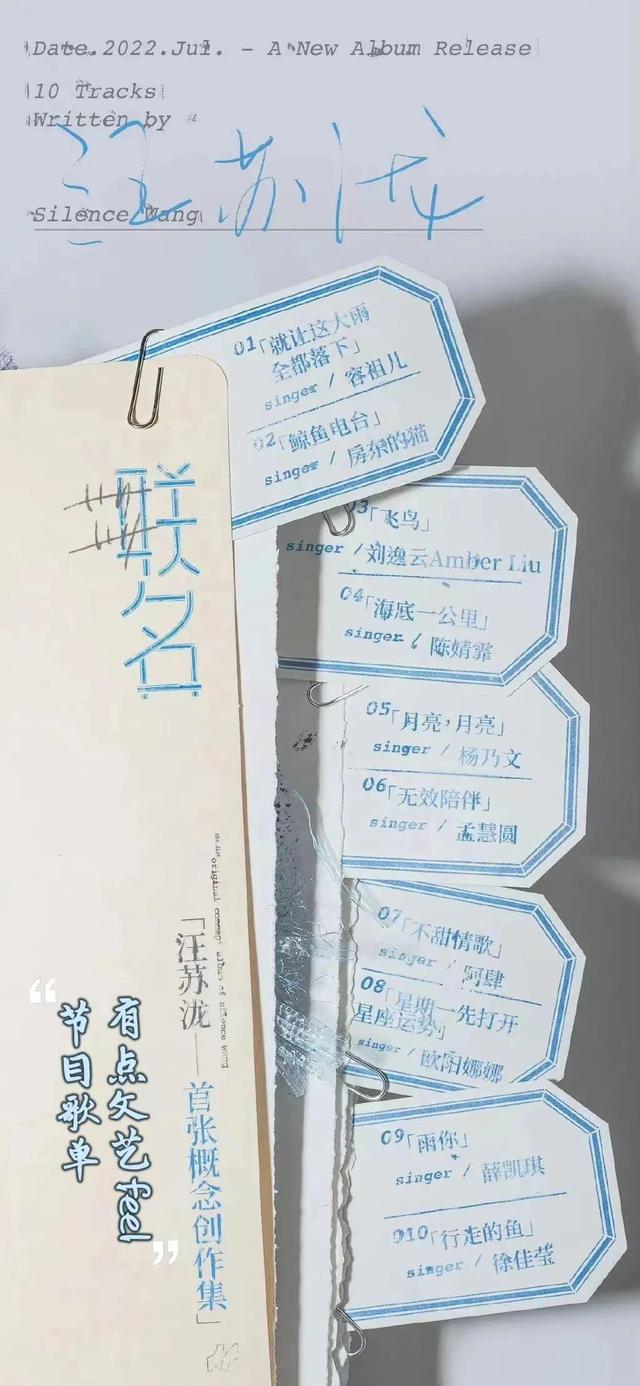 Date.2022.Jul. - A New Album Release
10 Tracks
Written by
汪苏泷
Silence Wang
01「就让这大雨
全都落下」
singer / 容祖儿
02「鲸鱼电台」
singer / 房东的猫
03「飞鸟」
singer / 刘逸云Amber Liu
04「海底一公里」
singer / 陈婧霏
05「月亮，月亮」
singer / 杨乃文
06「无效陪伴」
singer / 孟慧圆
07「不甜情歌」
singer / 阿肆
08「星期一先打开
星座运势」
singer / 欧阳娜娜
09「雨你」
singer / 薛凯琪
010「行走的鱼」
singer / 徐佳莹
联名
the first original concept album of silence wang
「汪苏泷——首张概念创作集」
“有点文艺feel
节目歌单”